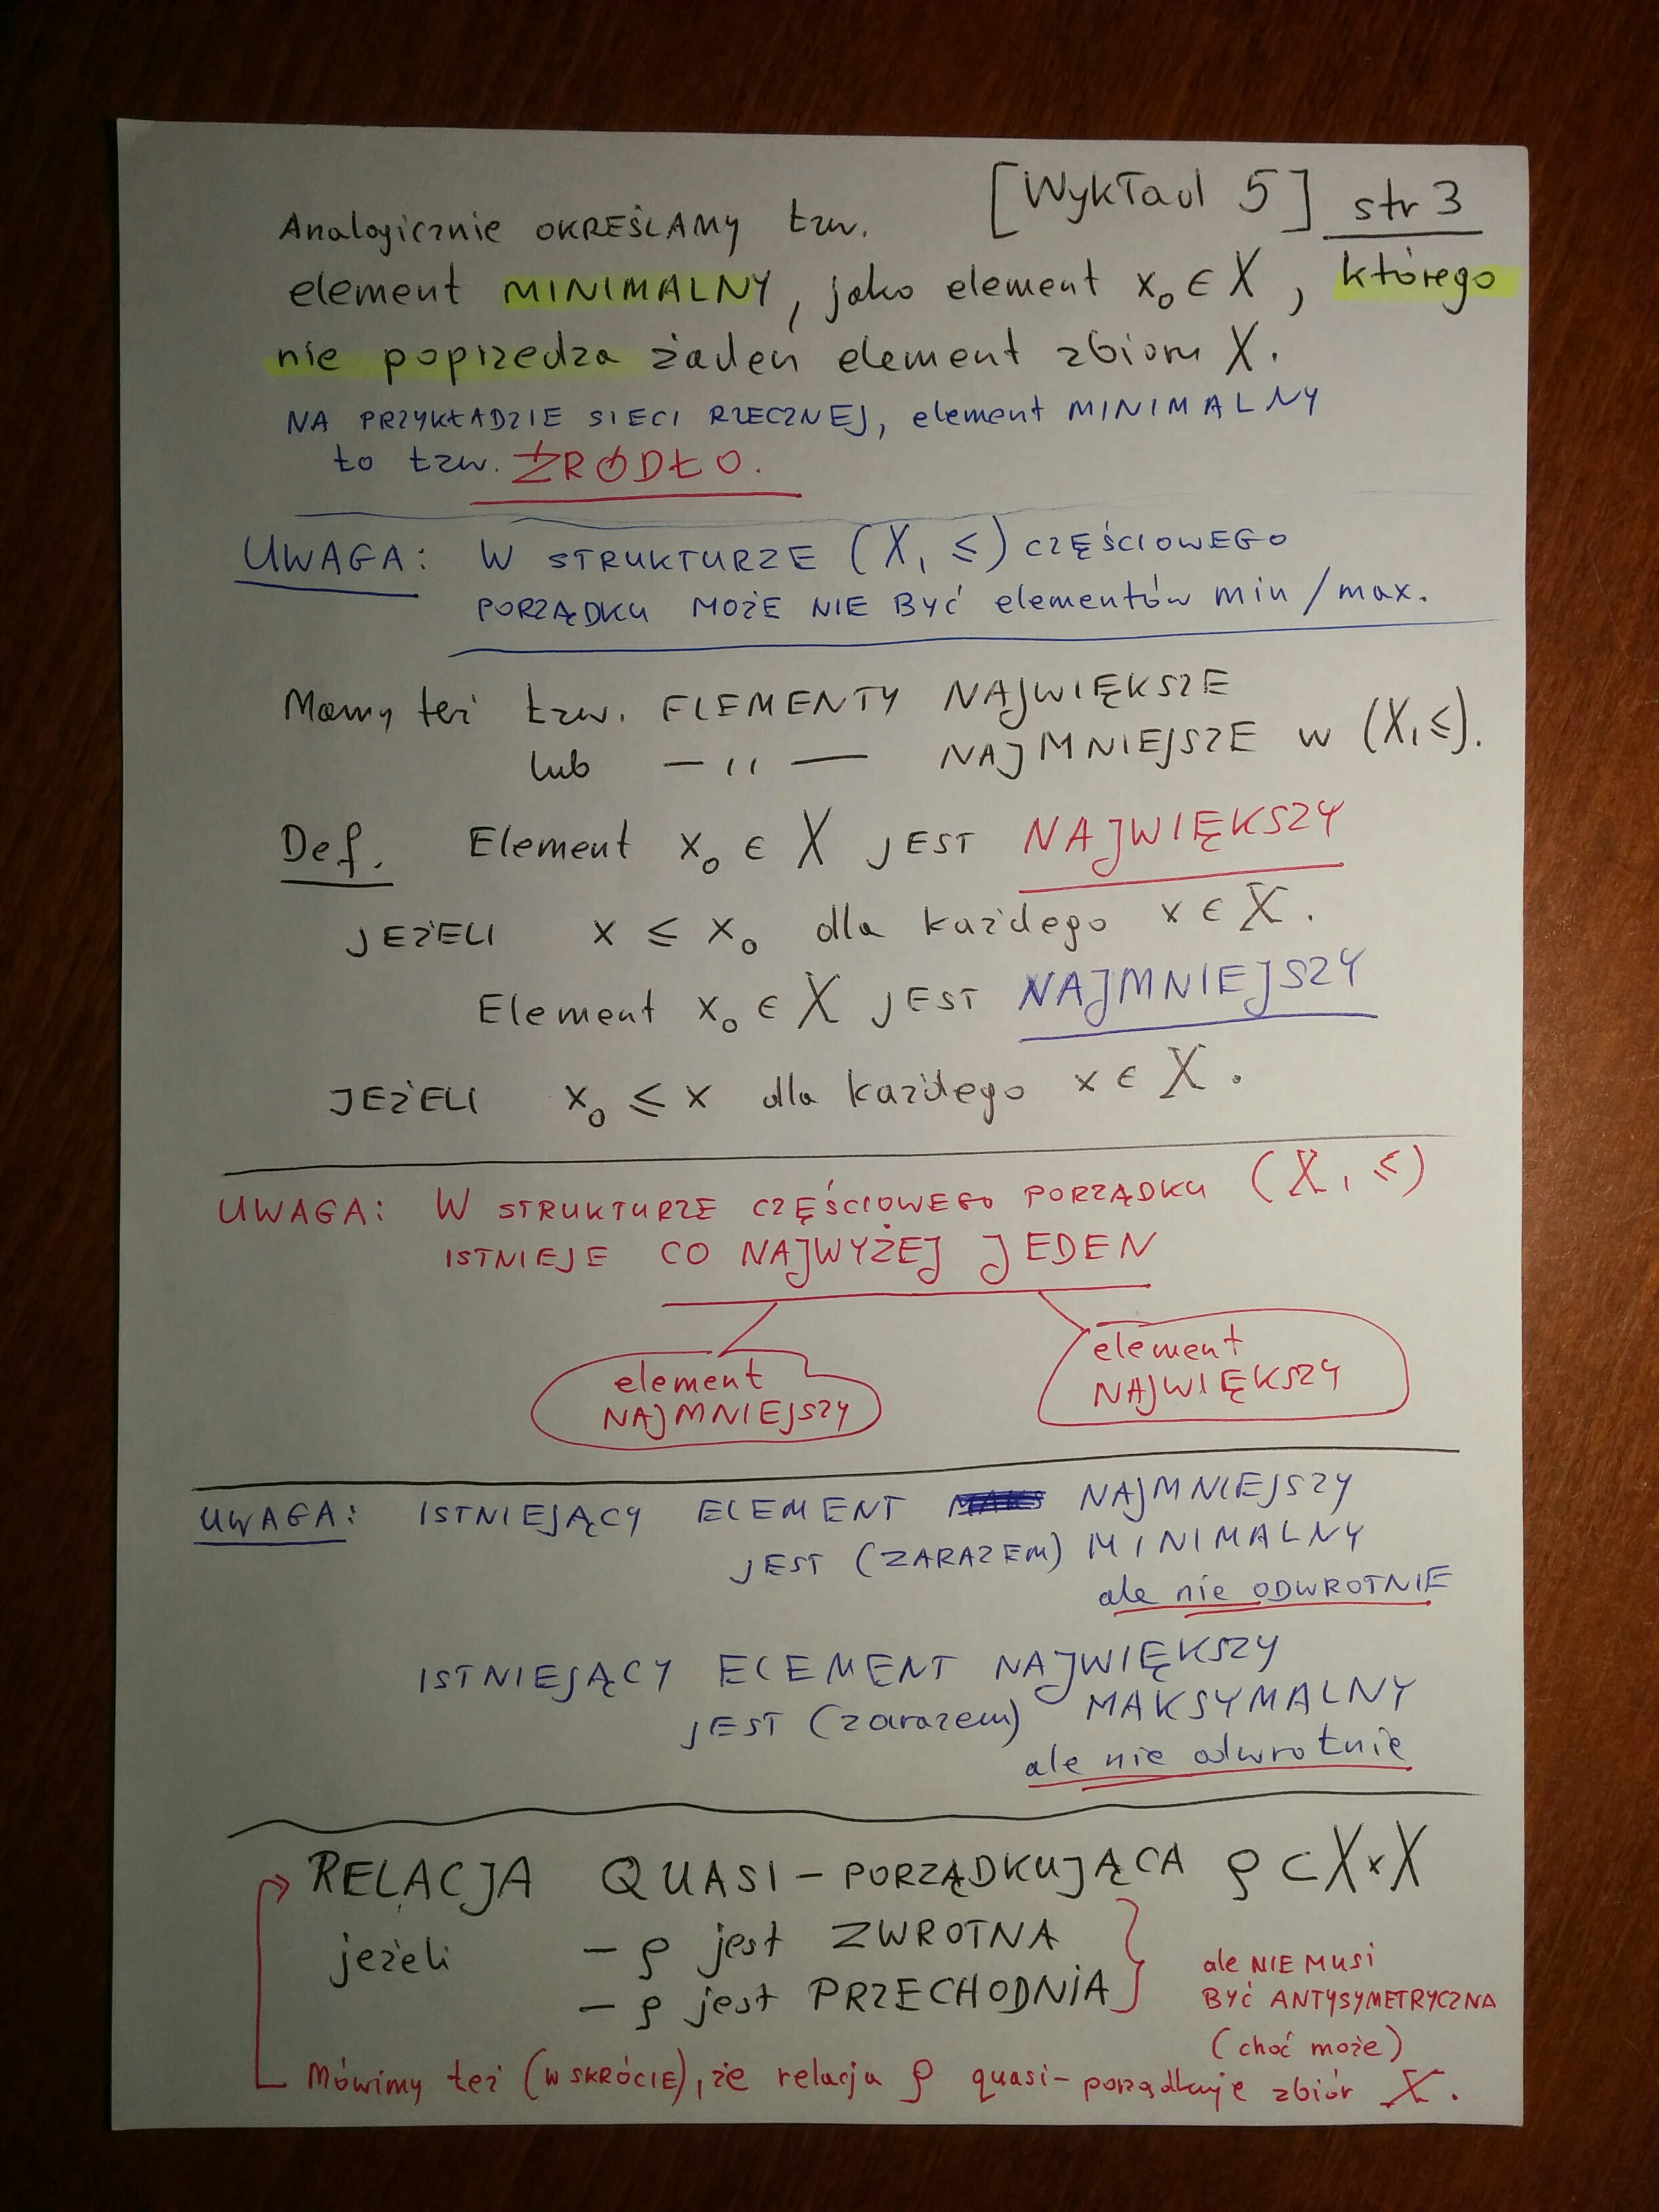 [Wykład 5] str 3
Analogicznie OKREŚLAMY tzw.
element MINIMALNY, jako element x₀ ∈ X, którego
nie poprzedza żaden element zbioru X.
NA PRZYKŁADZIE SIECI RZECZNEJ, element MINIMALNY
to tzw. ŹRÓDŁO.
UWAGA: W STRUKTURZE (X, ≤) CZĘŚCIOWEGO
PORZĄDKU MOŻE NIE BYĆ elementów min/max.
Mamy też tzw. ELEMENTY NAJWIĘKSZE
lub — ıı — NAJMNIEJSZE w (X, ≤).
Def. Element x₀ ∈ X JEST NAJWIĘKSZY
JEŻELI x ≤ x₀ dla każdego x ∈ X.
Element x₀ ∈ X JEST NAJMNIEJSZY
JEŻELI x₀ ≤ x dla każdego x ∈ X.
UWAGA: W STRUKTURZE CZĘŚCIOWEGO PORZĄDKU (X, ≤)
ISTNIEJE CO NAJWYŻEJ JEDEN
element
NAJMNIEJSZY
element
NAJWIĘKSZY
UWAGA: ISTNIEJĄCY ELEMENT NAJMNIEJSZY
JEST (ZARAZEM) MINIMALNY
ale nie ODWROTNIE
ISTNIEJĄCY ELEMENT NAJWIĘKSZY
JEST (zarazem) MAKSYMALNY
ale nie odwrotnie
RELACJA QUASI-PORZĄDKUJĄCA ρ ⊂ X×X
jeżeli — ρ jest ZWROTNA
— ρ jest PRZECHODNIA
ale NIE MUSI
BYĆ ANTYSYMETRYCZNA
(choć może)
Mówimy też (W SKRÓCIE), że relacja ρ quasi-porządkuje zbiór X.